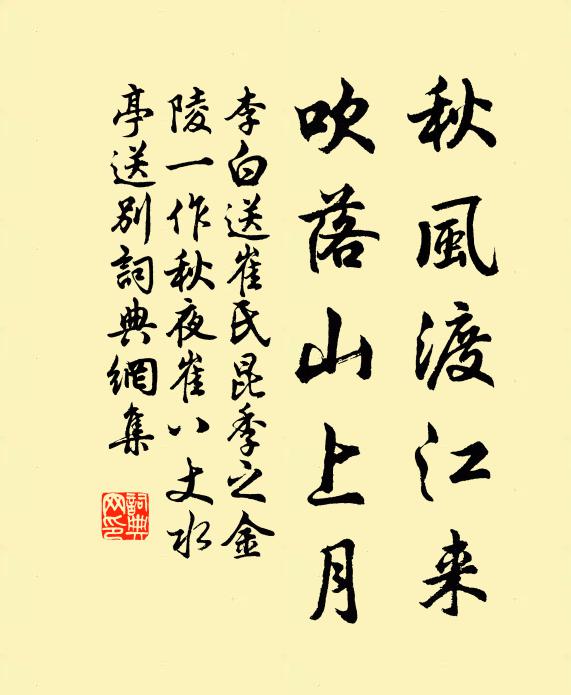 秋風渡江来
吹落山上月
李白送崔氏昆季之金
陵一作秋夜崔八丈水
亭送別詞典網集
詞典
网印